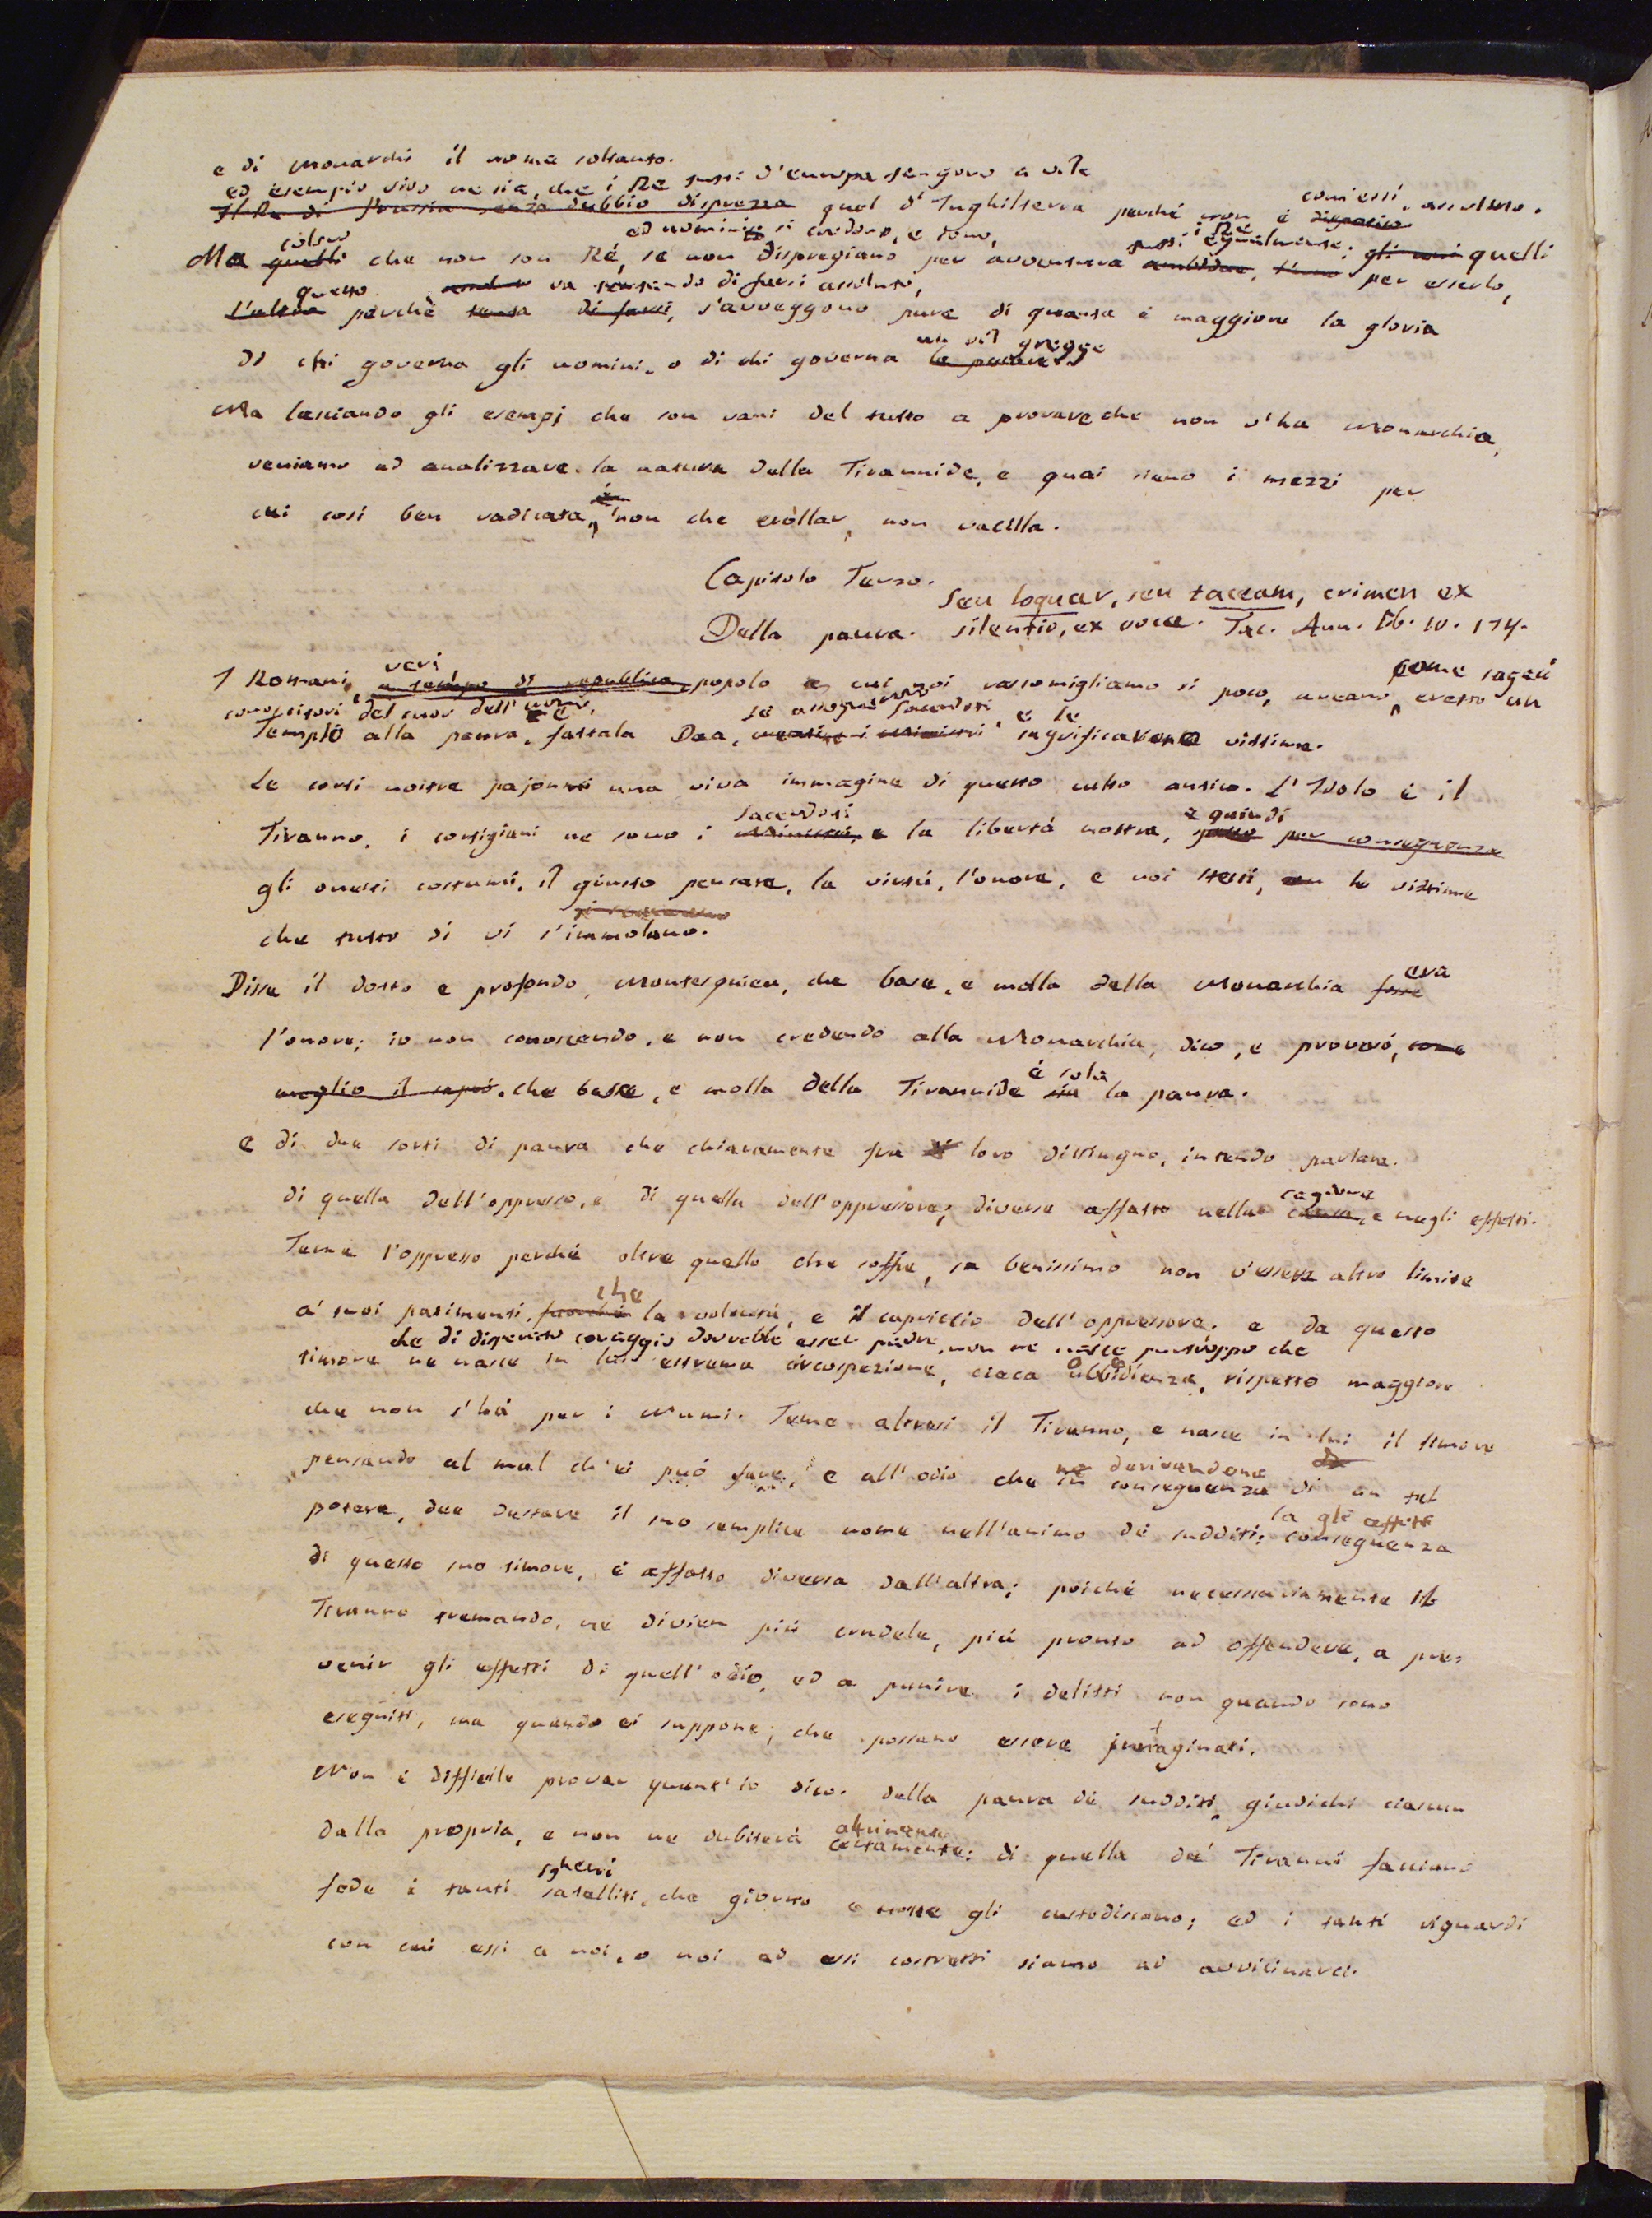 e di Monarchi il nome soltanto.
ed esempio vivo ne sia, che i Re tutti d'europa tengono a vile
Il Re di Prussia senza dubbio disprezza quel d'Inghilterra perché non é dispotico com'essi, assoluto.
ed uomini si credono, e sono, tutti i Ré egualmente;
Ma quelli coloro che non son Ré, se non dispregiano per avventura ambidue, l'uno gli uni quelli per esserlo,
l'altro questo perchè tenta di farsi, va tentando di farsi assoluto, s'avveggono pure di quanta é maggiore la gloria
di chi governa gli uomini, o di chi governa le pecore. un vil gregge
Ma lasciando gli esempj che son vani del tutto a provare che non v'ha Monarchia,
veniamo ad analizzare la natura della Tirannide, e quai sieno i mezzi per
cui così ben radicata, é non che crollar, non vacilla.
Capitolo Terzo.
Seu loquar, seu taceam, crimen ex
Della paura. silentio, ex voce. Tac. Ann. lib.
I Romani, a tempo di republica, veri popolo a cui noi rassomigliamo sì poco, aveano, come sagaci
conoscitori del cuor dell'uomo, eretto un
Tempio alla paura, fattala Dea, i ministri sacerdoti, e le sagrificavano vittime.
Le corti nostre pajonmi una viva immagine di questo culto antico. L'Idolo é il
Tiranno, i cortigiani ne sono i ministri, sacerdoti e la libertá nostra, e quindi per conseguenza
gli onesti costumi, il giusto pensare, la virtú, l'onore, e noi stessi, le vittime
che tutto dì vi s'immolano.
Disse il dotto e profondo Montesquieu, che base, e molla della Monarchia fosse era
l'onore; io non conoscendo, e non credendo alla Monarchia, dico, e proveró, come
meglio il sapró, che base, e molla della Tirannide sia é sola la paura.
E di due sorti di paura che chiaramente fra di loro distinguo, intendo parlare.
di quella dell'oppresso, e di quella dell'oppressore; diverse affatto nella causa, cagione e negli effetti.
Teme l'oppresso perché oltre quello che soffre, sa benissimo non v'essere altro limite
a' suoi patimenti, fuorché che la volontá, e il capriccio dell'oppressore; e da questo
che di disperato coraggio dovrebbe esser padre, non ne nasce purtroppo che
timore ne nasce in lui estrema circospezione, cieca obbedienza, rispetto maggiore
che non s'há per i Numi. Teme altresì il Tiranno, e nasce in lui il timore
pensando al mal ch'ei puó fare, e all'odio che in conseguenza ne derivandone di un tal
potere, dee destare il suo semplice nome nell'animo de' sudditi; la gli effetti conseguenza
di questo suo timore, é affatto diversa dall'altra; poiché necessariamente il
Tiranno tremando, ne divien più crudele, più pronto ad offendere, a pre=
venir gli effetti di quell'odio, ed a punire i delitti non quando sono
eseguiti, ma quando ei suppone, che possano essere immaginati.
Non é difficile provar quant'io dico. della paura de' sudditi, giudichi ciascun
dalla propria, e non ne dubiterá altrimente certamente; di quella de' Tiranni facciano
fede i tanti satelliti, sgherri che giorno e notte gli custodiscono; ed i tanti riguardi
con cui essi a noi, o noi ad essi costretti siamo ad avvicinarci.